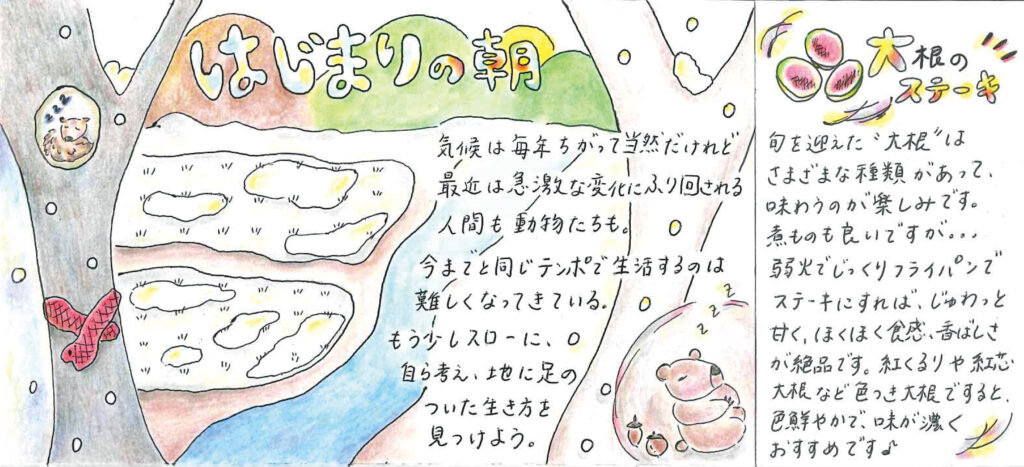 はじまりの朝
気候は毎年ちがって当然だけれど
最近は急激な変化にふり回される
人間も動物たちも。
今までと同じテンポで生活するのは
難しくなってきている。
もう少しスローに、
自ら考え、地に足の
ついた生き方を
見つけよう。
zzz
zzz
大根の
ステーキ
旬を迎えた〝大根〟は
さまざまな種類があって、
味わうのが楽しみです。
煮ものも良いですが。。。
弱火でじっくりフライパンで
ステーキにすれば、じゅわっと
甘く、ほくほく食感、香ばしさ
が絶品です。紅くるりや紅芯
大根など色つき大根ですると、
色鮮やかで、味が濃く
おすすめです♪